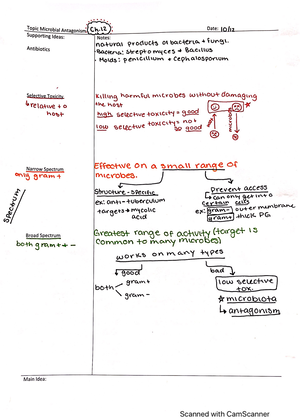 Topic Microbial Antagonism Ch.12
Date: 10/12
Supporting Ideas:
Notes:
Antibiotics
natural products of bacteria + fungi.
- Bacteria: Streptomyces + Bacillus
- Molds: penicillium + Cephalosporium
Selective Toxicity
↳ relative to host
Killing harmful microbes without damaging
the host
high selective toxicity = good
low selective toxicity = not so good
host
microbe
Narrow Spectrum
only gram +
Effective on a small range of
microbes.
Structure-Specific
ex: anti-tuberculum
targets → mycolic
acid
Prevent access
↳ can only get into
certain cells
ex: gram- outer membrane
gram+ thick PG
Spectrum
Broad Spectrum
both gram + + -
Greatest range of activity (target is
common to many microbes)
works on many types
good
both
gram+
gram-
bad
low selective
tox.
☆ microbiota
↳ antagonism
Main Idea:
Scanned with CamScanner